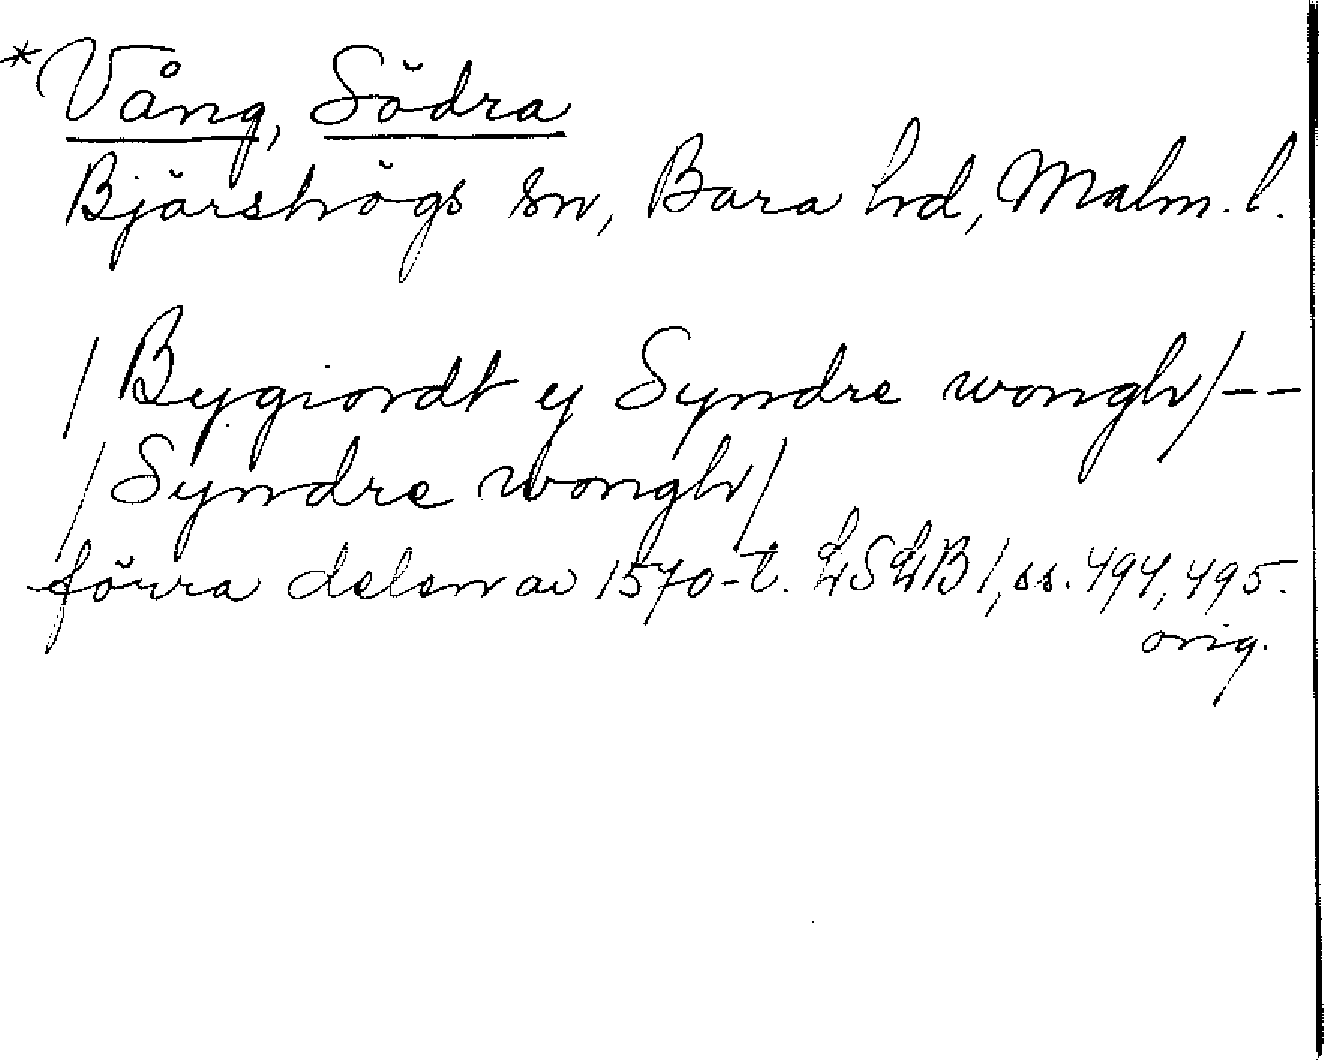 *Vång, Södra
Bjärshögs sn, Bara hd, Malm. l.
/Bygiordt y Syndre wongh/--
/Syndre wongh/
förra delen av 1570-t. LSLB 1, ss. 494, 495.
orig.